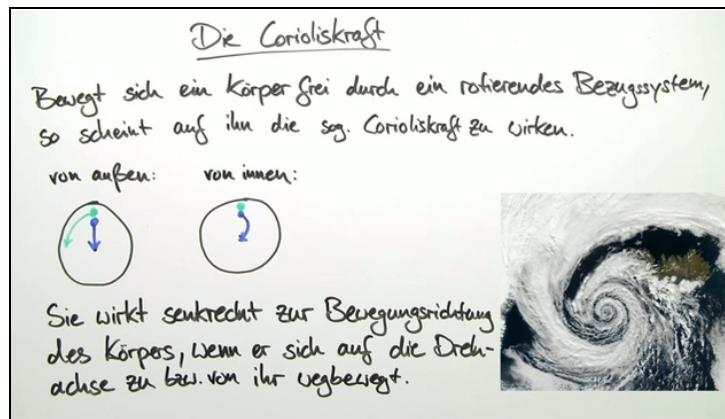 Die Corioliskraft
Bewegt sich ein Körper frei durch ein rotierendes Bezugssystem,
so scheint auf ihn die sog. Corioliskraft zu wirken.
von außen: von innen:
Sie wirkt senkrecht zur Bewegungsrichtung
des Körpers, wenn er sich auf die Dreh-
achse zu bzw. von ihr wegbewegt.